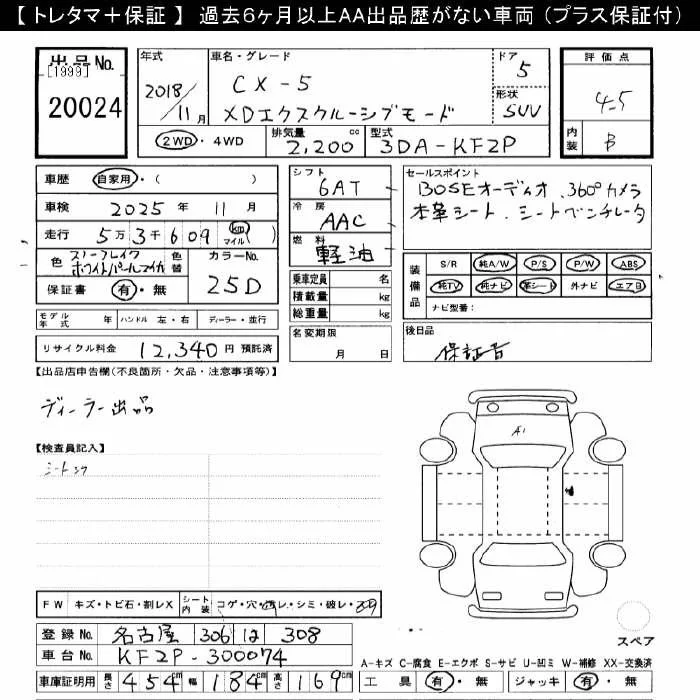 【 トレタマ＋保証 】 過去6ヶ月以上AA出品歴がない車両（プラス保証付）
出品No.
[1999]
20024
年式
2018/11月
車名・グレード
CX-5
XDエクスクルーシブモード
ドア
5
形状
SUV
評価点
4.5
内装
B
2WD・4WD
排気量
2,200cc
型式
3DA-KF2P
車歴 自家用・（ ）
車検 2025年 11月
走行 5万3千609 （km マイル）
色 スノーフレイクホワイトパールマイカ
色替
カラーNo.
25D
保証書 有・無
モデル年式 年 ハンドル 左・右 ディーラー・並行
リサイクル料金 12,340円 預託済
シフト
6AT
冷房
AAC
燃料
軽油
乗車定員 名
積載量 kg
総重量 kg
名変期限
月 日
セールスポイント
BOSEオーディオ、360°カメラ
本革シート、シートベンチレータ
装備品
S/R 純A/W P/S P/W ABS
純TV 純ナビ 革シート 外ナビ エア日
ナビ型番：
後日品
保証書
【出品店申告欄(不良箇所・欠品・注意事項等)】
ディーラー出品
【検査員記入】
A1
FW キズ・トビ石・割レX
シート内装
登録No. 名古屋 306 は 308
車台No. KF2P-300074
車庫証明用 長さ 454cm 幅 184cm 高さ 169cm
スペア
A-キズ C-腐食 E-エクボ S-サビ U-凹ミ W-補修 XX-交換済
工具 有・無 ジャッキ 有・無